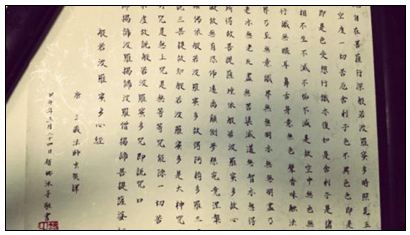 自在菩薩行深般若波羅蜜多時照見五
空度一切苦厄舍利子色不異色色即是
即是色受想行識亦復如是舍利子是諸
相不生不滅不垢不淨是故空中無色無
行識無眼耳鼻舌身意無色聲香味觸法
界乃至無意識界無無明亦無無明盡乃
亦無老死盡無苦集滅道無智亦無得
所得故菩提薩埵依般若波羅蜜多故心
礙故無有恐怖遠離顛倒夢想究竟涅槃
諸佛依般若波羅蜜多故得阿耨多羅三
三菩提故知般若波羅蜜多是大神咒
咒是無上咒是無等等咒能除一切苦
不虛故說般若波羅蜜多咒即說咒曰
揭諦波羅揭諦波羅僧揭諦菩提薩婆
般若波羅蜜多心經
唐三藏法師玄奘譯
年三月二十四日